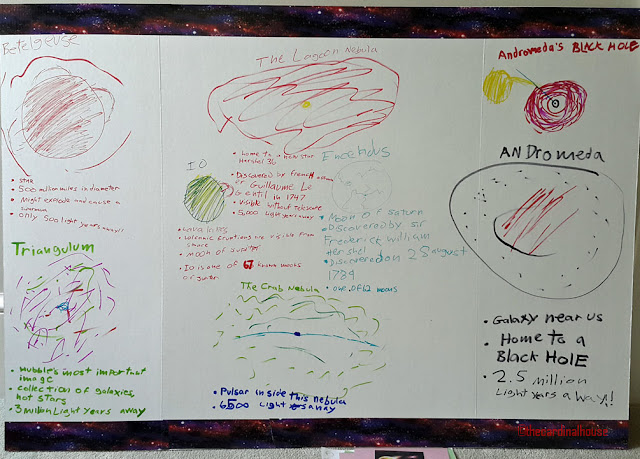 Betelgeuse
• star
• 500 million miles in diameter
• Might explode and cause a
• only 500 light years away!
Triangulum
• Hubble's most important
image
• collection of galaxies,
hot stars
• 3 million Light years away
The Lagoon Nebula
• home to a near star
Hershel 36
• Discovered by French
Guillaume Le
Gentil in 1747
• visible without telescope
• 5,000 Light years away
IO
• Lava lakes
• volcanic eruptions are visible from
space
• moon of Jupiter
• Io is one of 67 known moons
of Jupiter
Enceladus
• Moon of saturn
• Discovered by sir
Frederick William
Hershel
• Discovered on 28 august
1789
• one of 62 moons
The Crab Nebula
• Pulsar inside this nebula
• 6500 light years away
Andromeda's BLACK HOLE
ANDromeda
• Galaxy near us
• Home to a
BLack HOLE
• 2.5 million
Light years away!
©thecardinalhouse